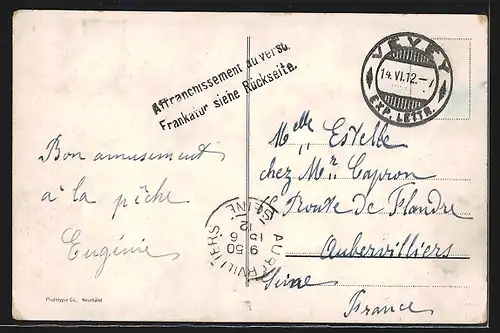 Affranchissement au verso.
Frankatur siehe Rückseite.
VEVEY
14.VI.12.–7
EXP. LETTR.
Bon amusement
à la pêche
Eugénie
Melle Estelle
chez Mr Capron
Route de Flandre
Aubervilliers
Seine
France
AUBERVILLIERS
9 50
15 6
12
SEINE
Phototypie Co., Neuchâtel